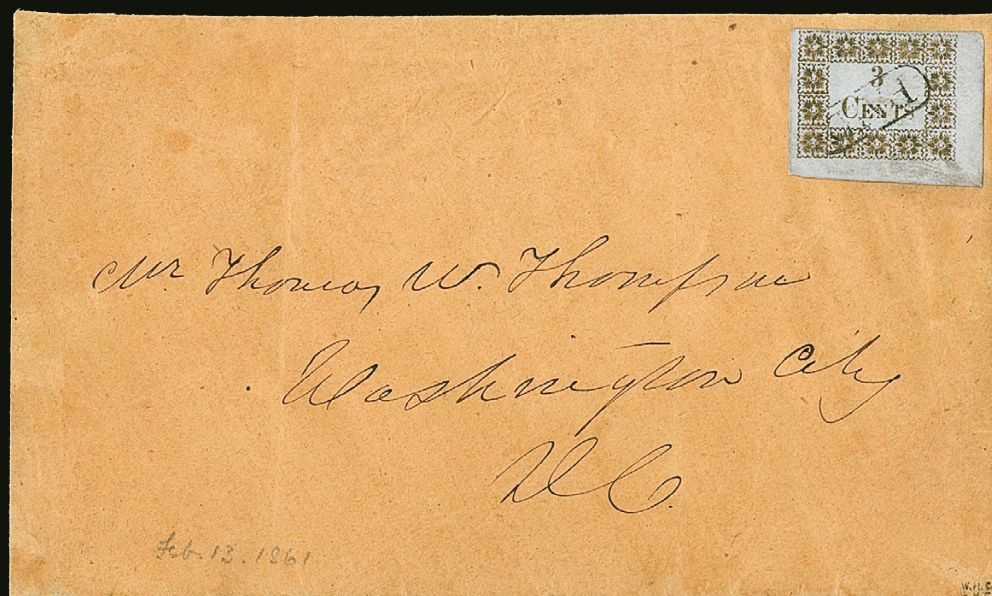 3
CENTS
1
Mr Thomas W. Thompson
Washington City
D C.
Feb. 13. 1861
W.H.C